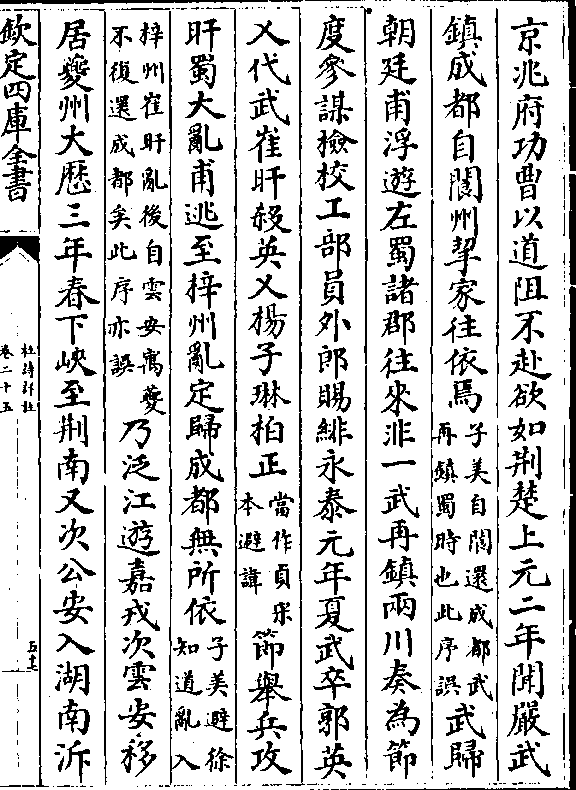 京兆府功曹以道阻不赴欲如荆楚上元二年聞嚴武
鎮成都自閬州挈家往依焉
子美自閬還成都武
再鎮蜀時也此序誤
武歸
朝廷甫浮遊左蜀諸郡往來非一武再鎮兩川奏為節
度參謀檢校工部員外郎賜緋永泰元年夏武卒郭英
乂代武崔旰殺英乂楊子琳柏正
當作貞宋
本避諱
節舉兵攻
旰蜀大亂甫逃至梓州亂定歸成都無所依
子美避徐
知道亂入
梓州崔旰亂後自雲安寓夔
不復還成都矣此序亦誤
乃泛江遊嘉戎次雲安移
居夔州大歷三年春下峽至荆南又次公安入湖南泝
欽定四庫全書
杜詩詳註
卷二十五